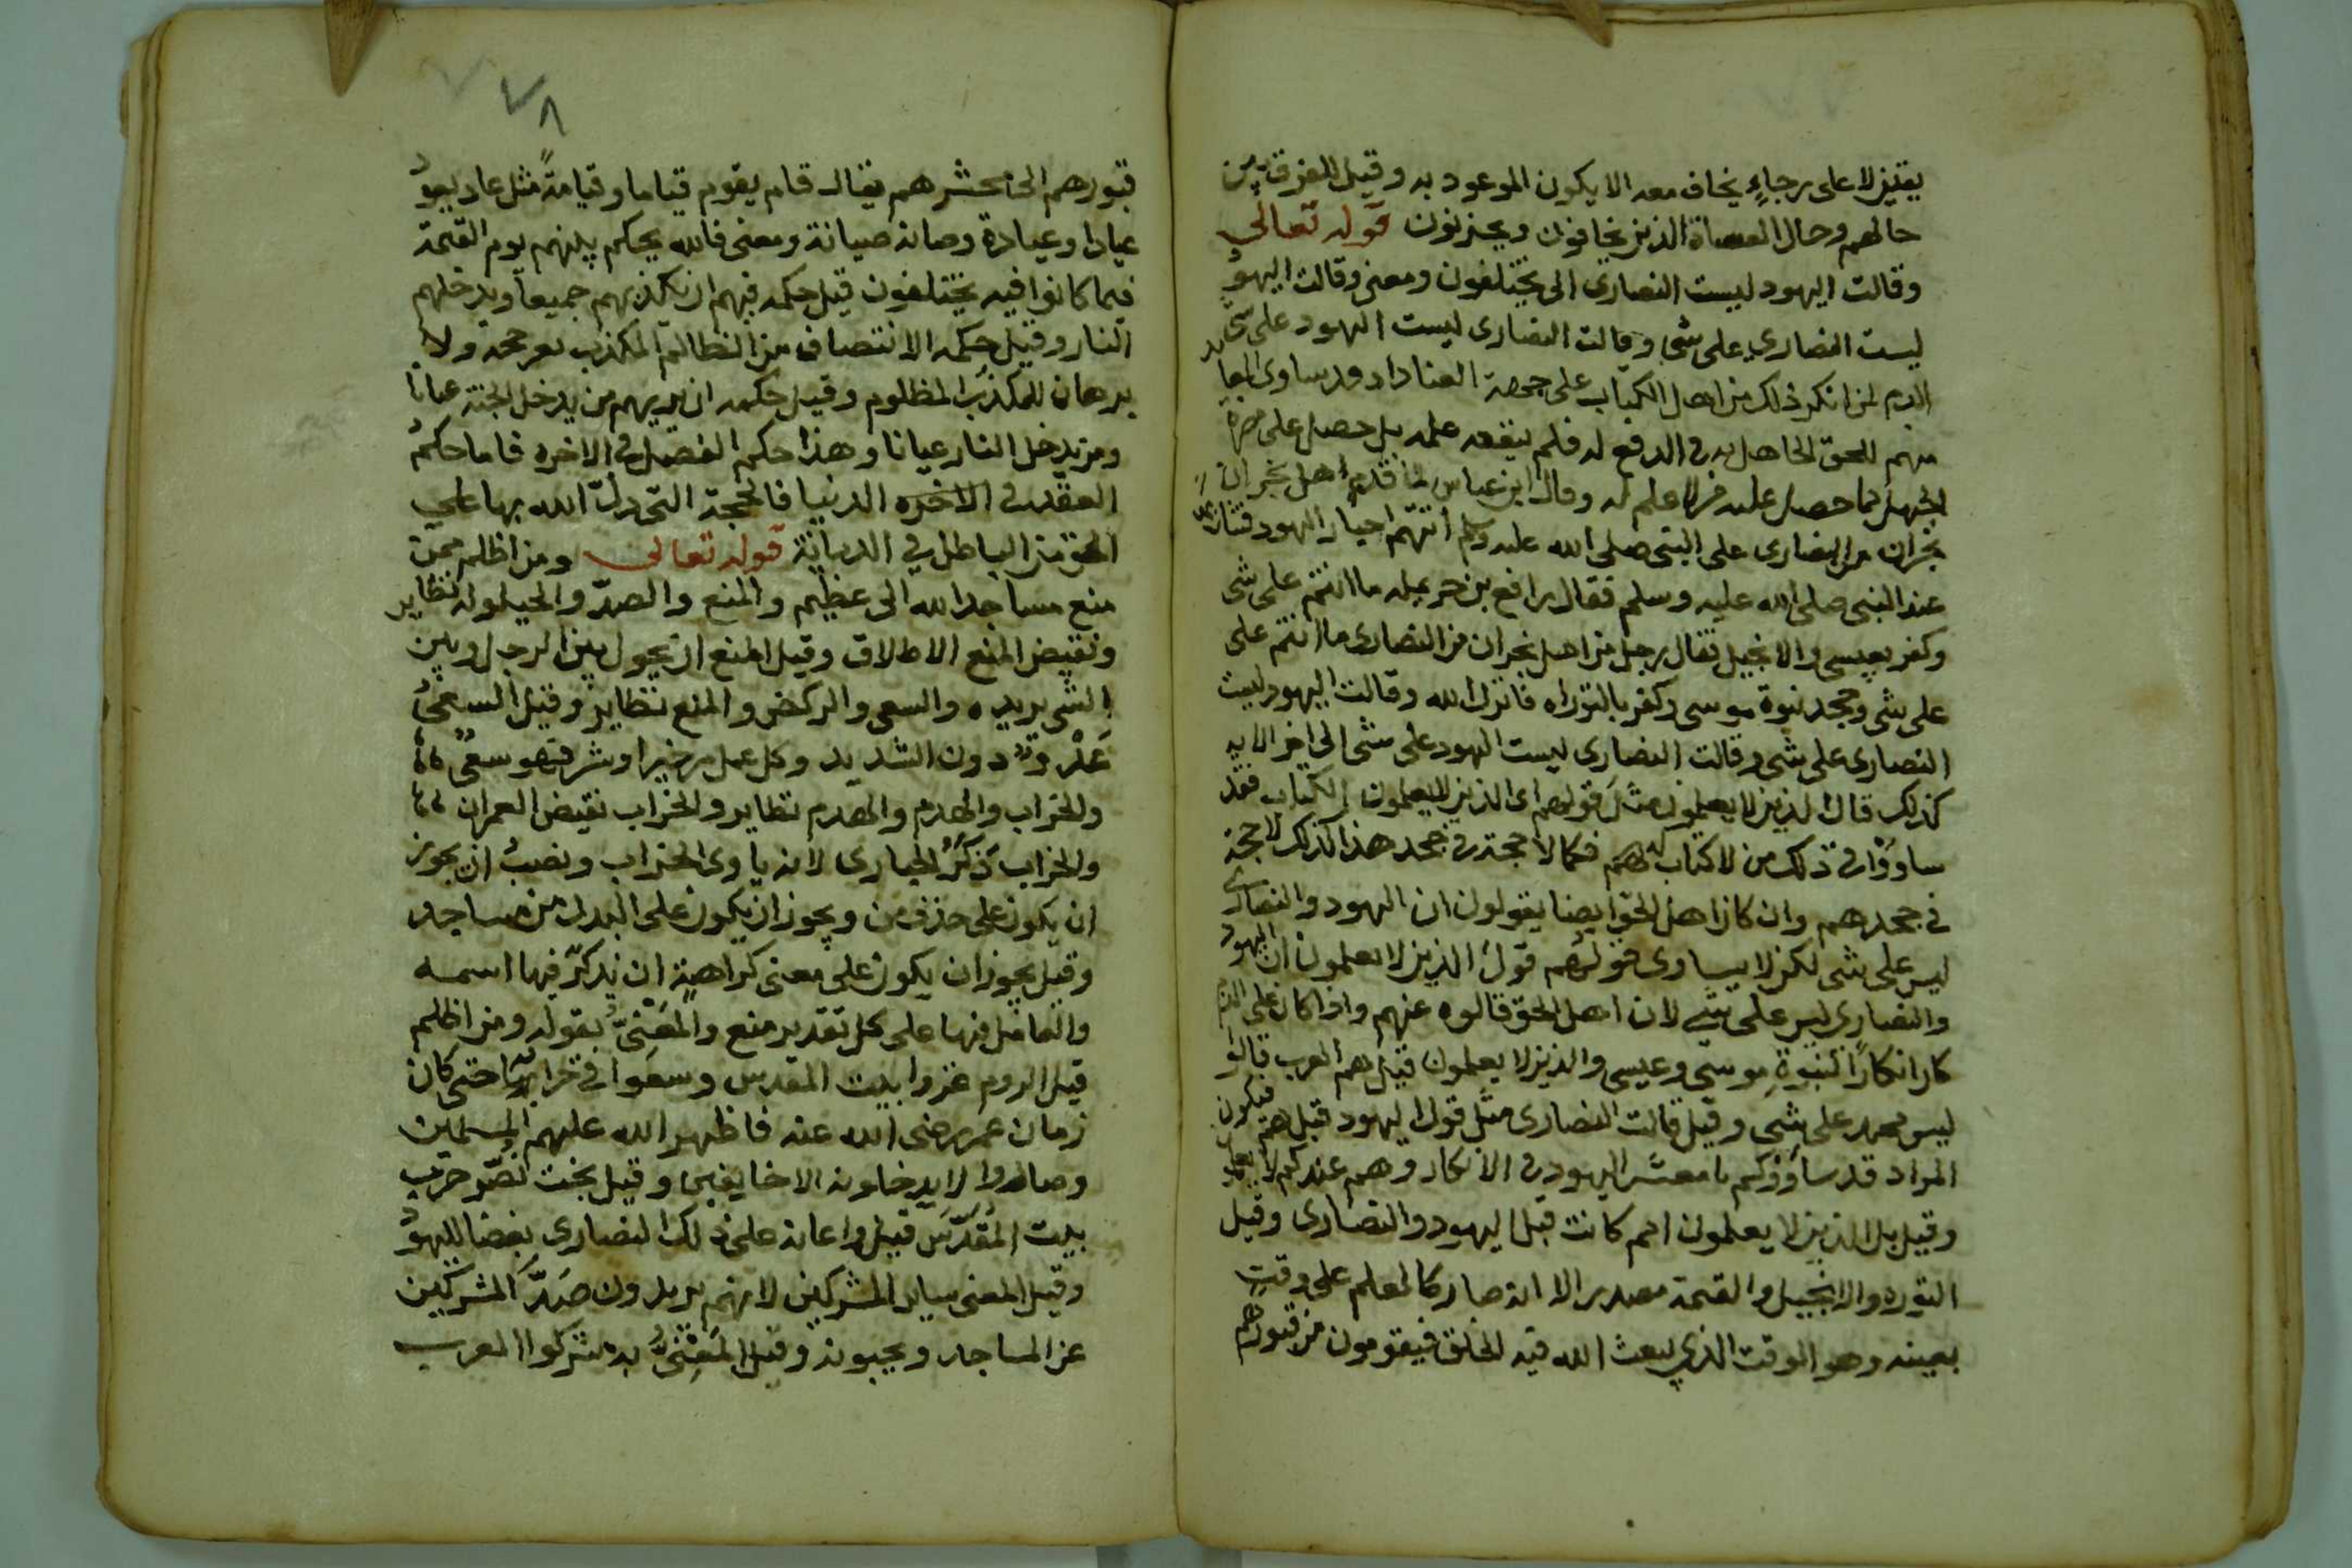 يقين لا على رجاءٍ يخاف معه الا يكون الموعود به وقيل للفرق بين
حالهم وحال العصاة الذين يخافون ويحزنون قوله تعالى
وقالت اليهود ليست النصارى الى يختلفون ومعنى وقالت اليهود
ليست النصارى على شي وقالت النصارى ليست اليهود على شي
الذم لمن انكر ذلك من اهل الكتاب على جهة العناد اذ قد ساوى المعاند
منهم للحق الجاهل به في الدفع له فلم ينفعه علمه بل حصل على مضرة
الجهل كما حصل عليه من لا علم له وقال ابن عباس لما قدم اهل نجران
نجران من النصارى على النبي صلى الله عليه وسلم أتتهم احبار اليهود فتنازعوا
عند النبي صلى الله عليه وسلم فقال رافع بن حريمله ما انتم على شي
وكفر بعيسى والانجيل فقال رجل من اهل نجران من النصارى ما انتم على
على شي وجحد نبوة موسى وكفر بالتوراه فانزل الله وقالت اليهود ليست
النصارى على شي وقالت النصارى ليست اليهود على شي الى اخر الايه
كذلك قال الذين لا يعلمون مثل قولهم اى الذين لا يعلمون الكتاب فقد
ساووا في ذلك من لا كتاب لهم فكما لا حجة في جحد هذا كذلك لا حجة
في جحدهم وان كان اهل الحق ايضا يقولون ان اليهود والنصارى
ليس على شي لكن لا يساوى قولهم قول الذين لا يعلمون ان اليهود
والنصارى ليس على شي لان اهل الحق قالوه عنهم واذا كان على
كان انكارًا لنبوة موسى وعيسى والذين لا يعلمون قيل هم العرب قالوا
ليس محمد على شي وقيل قالت النصارى مثل قول اليهود قبلهم فيكون
المراد قد ساووكم يا معشر اليهود في الانكار وهم عندكم لا يعلمون
وقيل بل الذين لا يعلمون امم كانت قبل اليهود والنصارى وقبل
التوره والانجيل والقيمة مصدر الا انه صار كالعلم على وقت
بعينه وهو الوقت الذي يبعث الله فيه الخلق فيقومون من قبورهم
٧٨
قبورهم الى محشرهم يقال قام يقوم قياما وقيامةً مثل عاد يعود
عيادا وعيادة وصانه صيانة ومعنى فالله يحكم بينهم يوم القيمة
فيما كانوا فيه يختلفون قيل حكمه فيهم ان يكذبهم جميعا ويدخلهم
النار وقيل حكمه الانتصاف من الظالم المكذب بغير حجه ولا
برهان للمكذب المظلوم وقيل حكمه ان يريهم من يدخل الجنة عيانا
ومن يدخل النار عيانا وهذا حكم الفصل في الاخره فاما حكم
العقد في الاخره الدنيا فالحجة التى دل الله بها على
الحق من الباطل في الديانة قوله تعالى ومن اظلم ممن
منع مساجد الله الى عظيم والمنع والصد والحيلوله نظاير
ونقيض المنع الاطلاق وقيل المنع ان يحول بين الرجل وبين
الشي يريده والسعى والركض والمنع نظاير وقيل السعي
عَدْو دون الشديد وكل عمل من خير او شر فهو سعى
والخراب والهدم والهدم نظاير والخراب نقيض العمران
والخراب ذَكَرُ الحبارى لانه ياوى الخراب ونصب ان يجوز
ان يكون على حذف من ويجوز ان يكون على البدل من مساجد
وقيل يجوز ان يكون على معنى كراهية ان يذكر فيها اسمه
والعامل فيها على كل تقدير منع والمَعْنِيُّ بقوله ومن اظلم
قيل الروم غزوا بيت المقدس وسعوا في خرابها حتى كان
زمان عمر رضى الله عنه فاظهر الله عليهم المسلمين
وصاروا لا يدخلونه الا خايفين وقيل بخت نصّر خرب
بيت المُقَدَّس قيل واعانه على ذلك النصارى بغضا لليهود
وقيل المعنى ساير المشركين لانهم يريدون صَدَّ المشركين
عن المساجد ويحبونه وقيل المَعْنِيُّ به مشركوا العرب